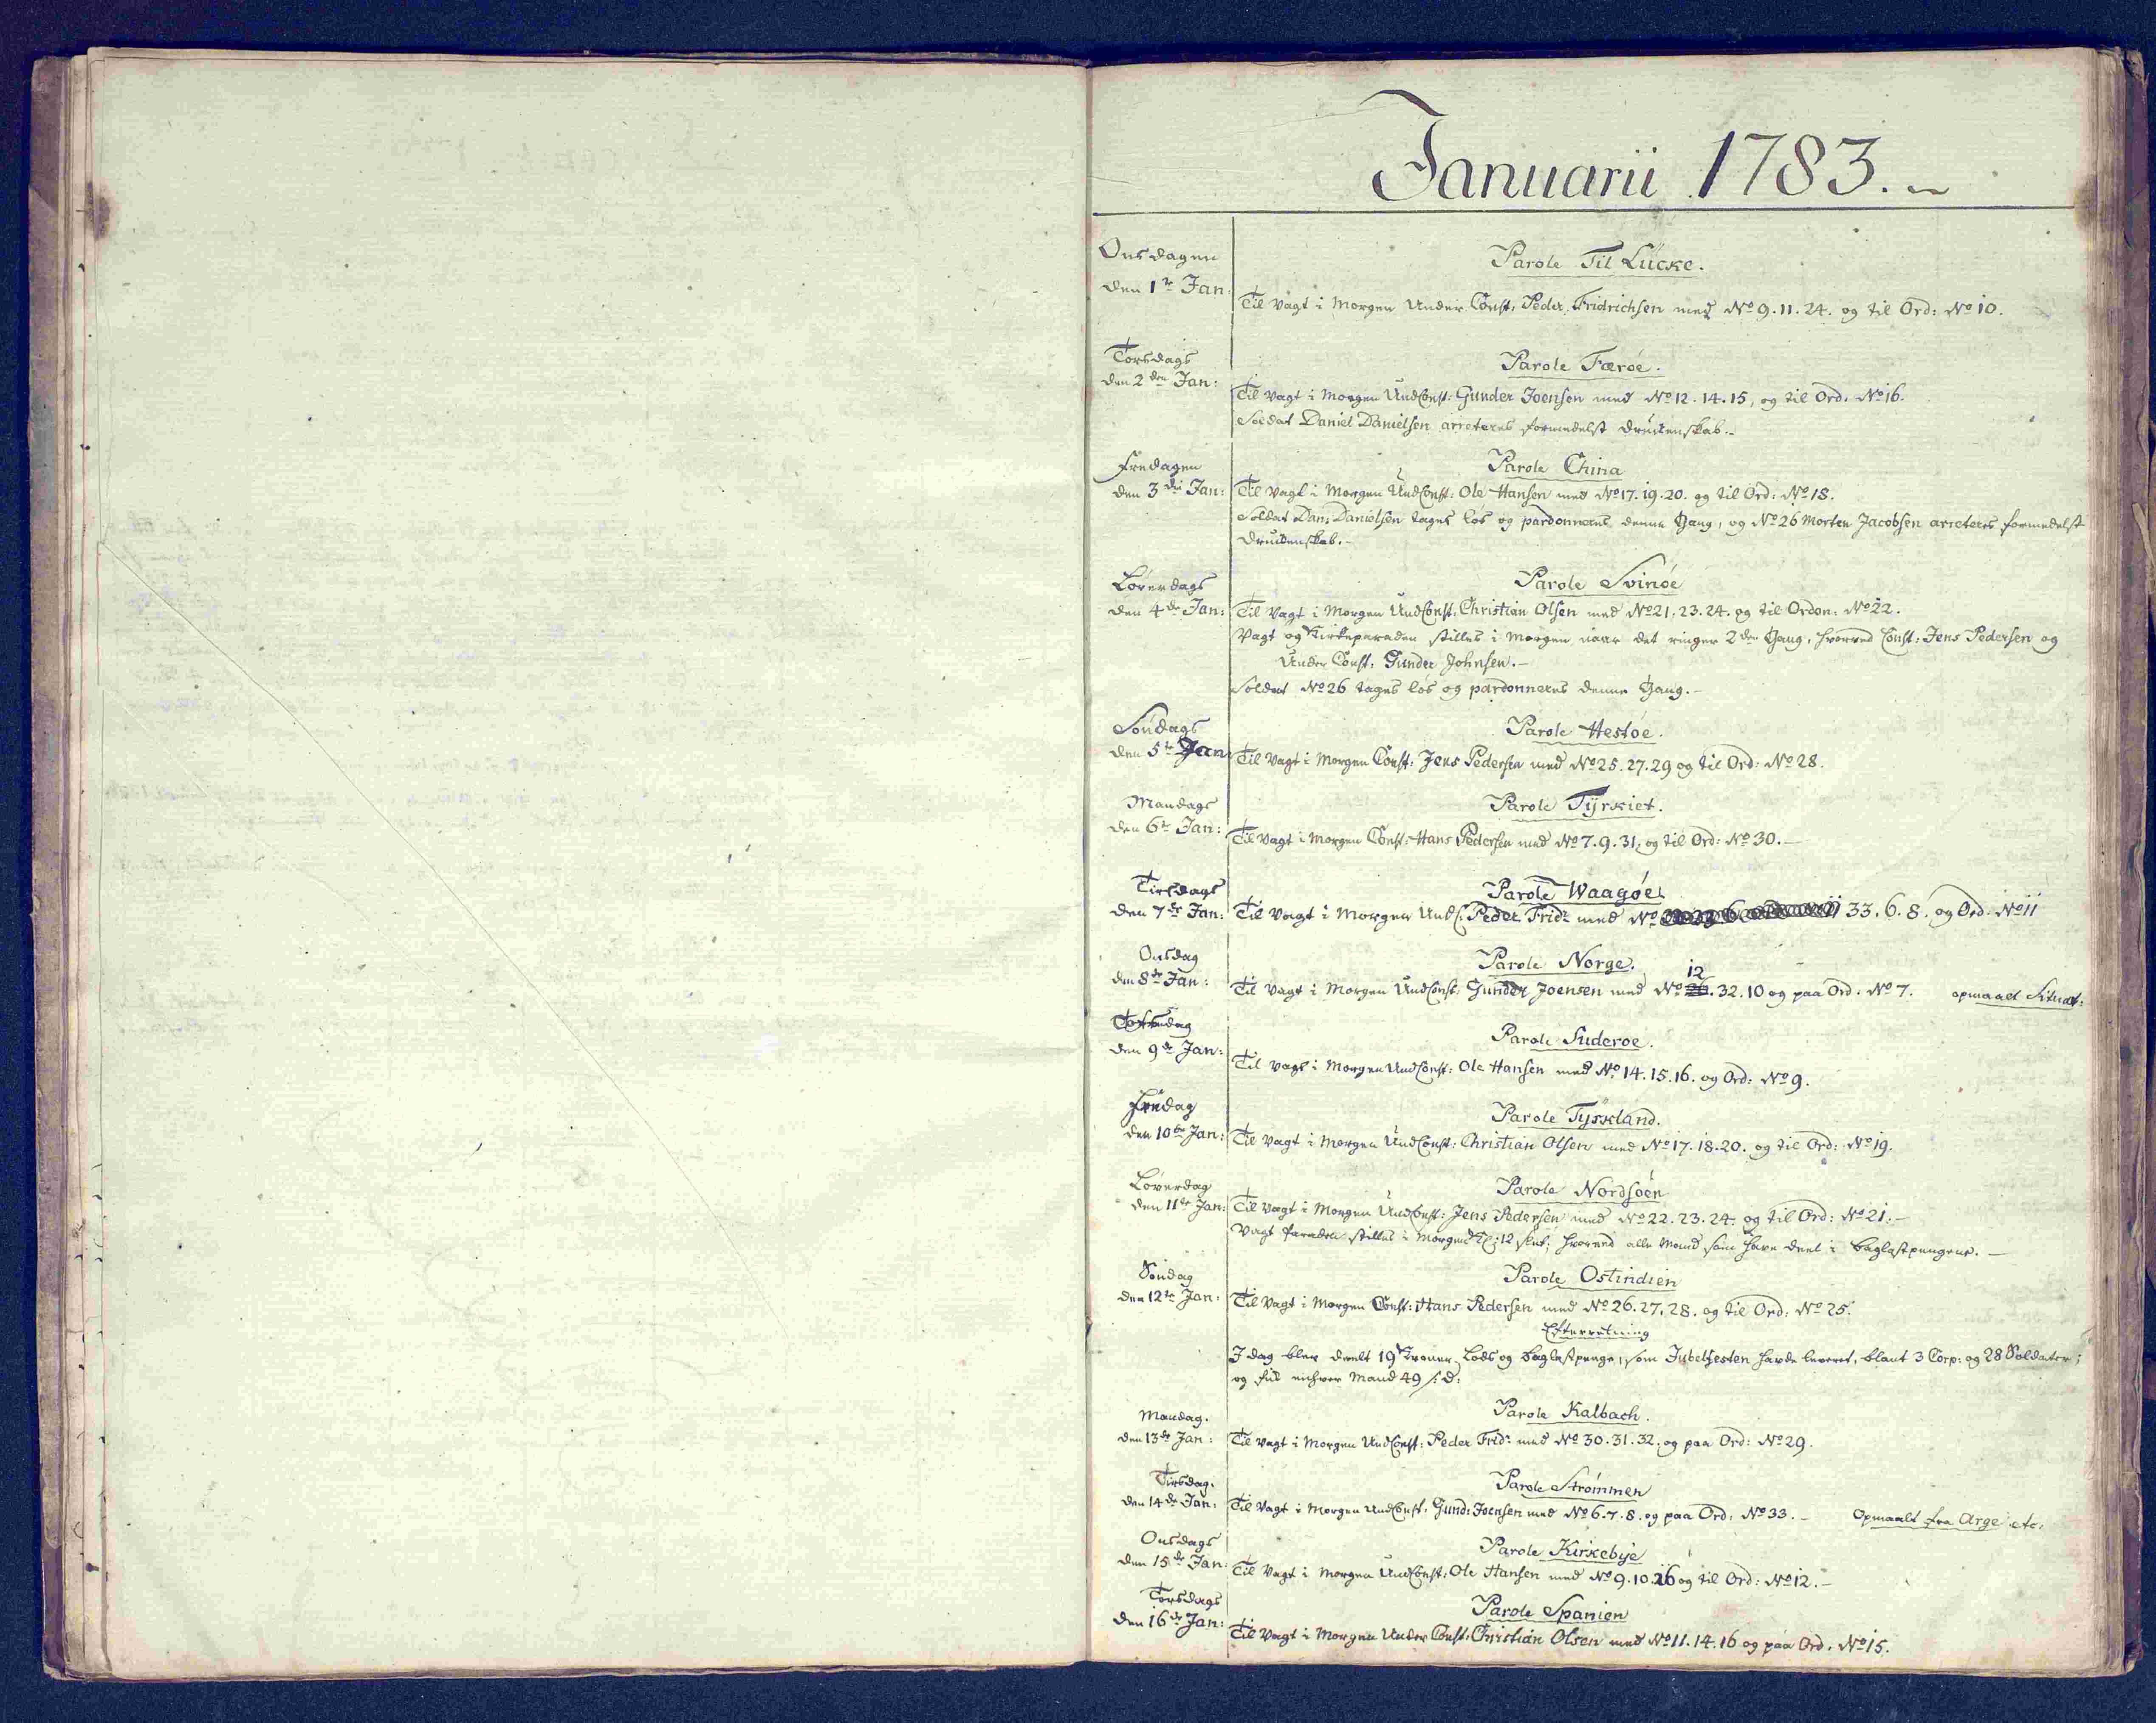 Januarii 1783.
Onsdagen
den 1te Jan:
Parole Til Lücke.
Til Vagt i Morgen Under Const: Peder Fridrichsen med No 9. 11. 24. og til Ord: No 10.
Torsdags
den 2den Jan:
Parole Færøe.
Til Vagt i Morgen UndConst: Gunder Joensen med No 12. 14. 15, og til Ord: No 16.
Soldat Daniel Danielsen arreteres formedelst Druckenskab.-
Fredagen
den 3die Jan:
Parole China
Til Vagt i Morgen UndConst: Ole Hansen med No 17. 19. 20. og til Ord: No 18.
Soldat Dan: Danielsen tages løs og pardonneres denne Gang, og No 26 Morten Jacobsen arreteres formedelst
Druckenskab.-
Løverdags
den 4de Jan:
Parole Svinöe
Til Vagt i Morgen UndConst: Christian Olsen med No 21. 23. 24. og til Ordon: No 22.
Vagt og Kirkeparaden stilles i Morgen naar det ringer 2den Gang, hvorved Const: Jens Pedersen og
Under Const: Gunder Johnsen.-
Soldat No 26 tages løs og pardonneres denne Gang.-
Søndags
den 5te Jan
Parole Hestøe.
Til Vagt i Morgen Const: Jens Pedersen med No 25. 27. 29 og til Ord: No 28.
Mandags
den 6te Jan:
Parole Tÿrkiet.
Til Vagt i Morgen Const: Hans Pedersen med No 7. 9. 31, og til Ord: No 30.-
Tirsdags
den 7de Jan:
Parole Waagøe
Til Vagt i Morgen UndC: Peder Fridr: med No 33. 6. 8. og Ord: No 11
Onsdag
den 8de Jan:
Parole Norge.
12
Til Vagt i Morgen UndConst: Gunder Joensen med No 32. 10 og paa Ord: No 7. opmaalt Situat:
Torsdag
den 9de Jan:
Parole Suderoe.
Til Vagt i Morgen UndConst: Ole Hansen med No 14. 15. 16. og Ord: No 9.
Fredag
den 10de Jan:
Parole Tÿskland.
Til Vagt i Morgen UndConst: Christian Olsen med No 17. 18. 20. og til Ord: No 19.
Løverdag
den 11te Jan:
Parole Nordsøen
Til Vagt i Morgen UndConst: Jens Pedersen med No 22. 23. 24. og til Ord: No 21.-
Vagt Paraden stilles i Morgen Kl: 12 slet; hvorved alle Mand som have deel i Baglastpengene.-
Søndag
den 12te Jan:
Parole Ostindien
Til Vagt i Morgen Const: Hans Pedersen med No 26. 27. 28. og til Ord: No 25.
Efterretning
I dag blev deelt 19 Kroner Lods og Baglastpenge, som Jubelfesten havde leveret, blant 3 Corp: og 28 Soldater;
og fik enhver Mand 49 s: d:
Mandag.
den 13de Jan:
Parole Kalbach.
Til Vagt i Morgen UndConst: Peder Frid: med No 30. 31. 32. og paa Ord: No 29.
Tirsdag.
den 14de Jan:
Parole Strømmen
Til Vagt i Morgen UndConst: Gund: Joensen med No 6. 7. 8. og paa Ord: No 33.- Opmaalt fra Arge etc.
Onsdags
den 15de Jan:
Parole Kirkebÿe
Til Vagt i Morgen UndConst: Ole Hansen med No 9. 10. 26 og til Ord: No 12.-
Torsdags
den 16de Jan:
Parole Spanien
Til Vagt i Morgen Under Const: Christian Olsen med No 11. 14. 16 og paa Ord: No 15.